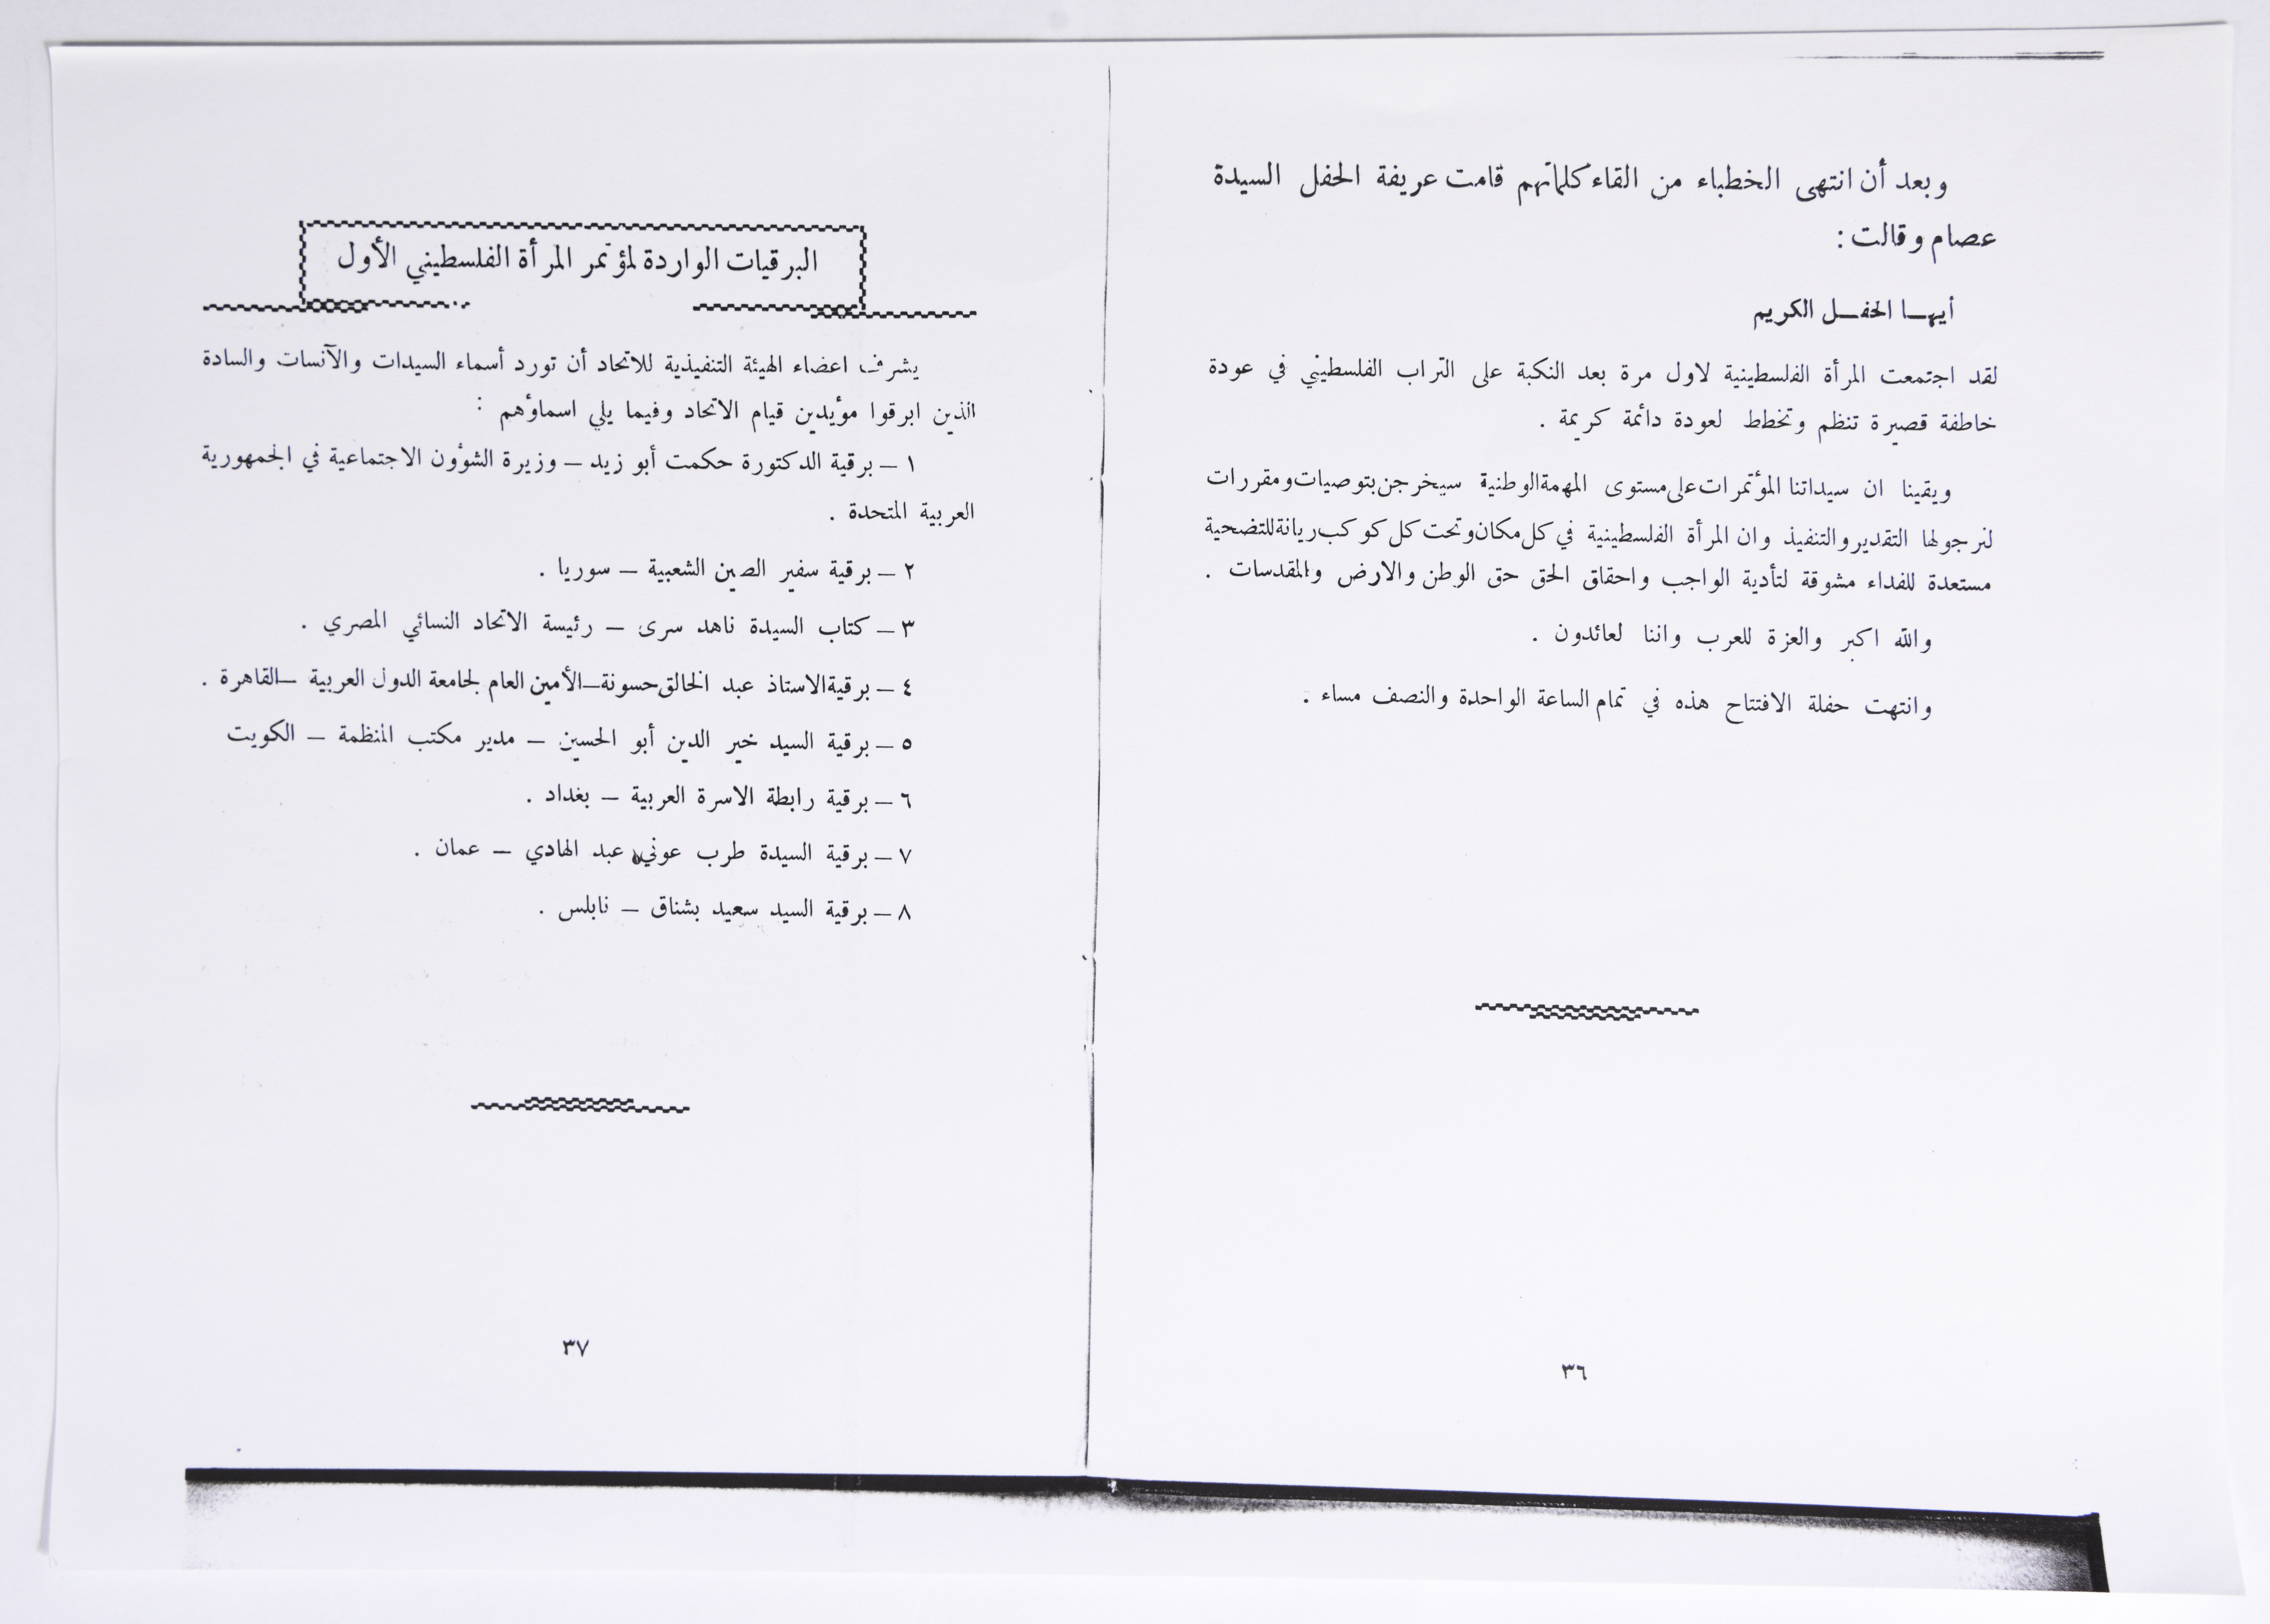 وبعد أن انتهى الخطباء من القاء كلماتهم قامت عريفة الحفل السيدة
عصام وقالت :
أيهـا الحفـل الكريم
لقد اجتمعت المرأة الفلسطينية لاول مرة بعد النكبة على التراب الفلسطيني في عودة
خاطفة قصيرة تنظم وتخطط لعودة دائمة كريمة .
ويقينا ان سيداتنا المؤتمرات على مستوى المهمة الوطنية سيخرجن بتوصيات ومقررات
لنرجولها التقدير والتنفيذ وان المرأة الفلسطينية في كل مكان وتحت كل كوكب ريانة للتضحية
مستعدة للفداء مشوقة لتأدية الواجب واحقاق الحق حق الوطن والارض والمقدسات .
والله اكبر والعزة للعرب واننا لعائدون .
وانتهت حفلة الافتتاح هذه في تمام الساعة الواحدة والنصف مساء .
٣٦
البرقيات الواردة لمؤتمر المرأة الفلسطيني الأول
يشرف اعضاء الهيئة التنفيذية للاتحاد أن تورد أسماء السيدات والآنسات والسادة
الذين ابرقوا مؤيدين قيام الاتحاد وفيما يلي اسماؤهم :
١ – برقية الدكتورة حكمت أبو زيد – وزيرة الشؤون الاجتماعية في الجمهورية
العربية المتحدة .
٢ – برقية سفير الصين الشعبية – سوريا .
٣ – كتاب السيدة ناهد سرى – رئيسة الاتحاد النسائي المصري .
٤ – برقية الاستاذ عبد الخالق حسونة – الأمين العام لجامعة الدول العربية – القاهرة .
٥ – برقية السيد خير الدين أبو الحسين – مدير مكتب المنظمة – الكويت
٦ – برقية رابطة الاسرة العربية – بغداد .
٧ – برقية السيدة طرب عوني عبد الهادي – عمان .
٨ – برقية السيد سعيد بشناق – نابلس .
٣٧